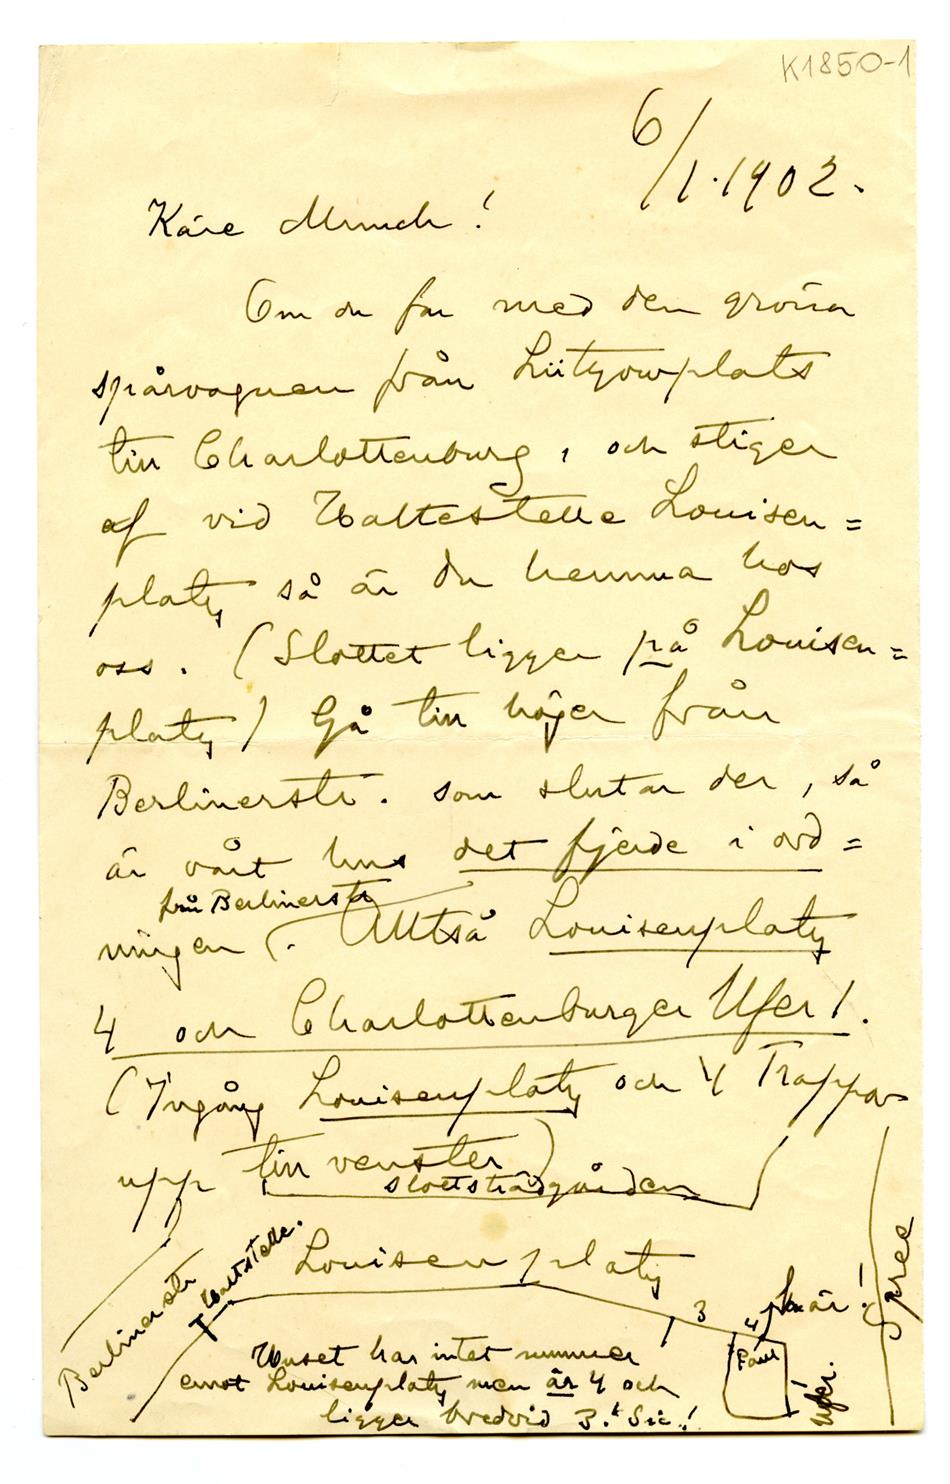 K1850-1
6/1.1902.
Käre Munch!
Om du far med den gröna
spårvagnen från Lützowplats
till Charlottenburg, och stiger
af vid Haltestelle Louisen=
platz så är du hemma hos
oss. (Slottet ligger på Louisen=
platz) Gå till höger från
Berlinerstr. som slutar der, så
är vårt hus det fjerde i ord=
från Berlinerstr
ningen. Alltså Louisenplatz
4 och Charlottenburger Ufer 1.
(Ingång Louisenplatz och 4 Trappor
upp till venster)
slottsträdgården
Louisenplatz
Berlinerstr
Haltstelle.
3
4
här!
Paul
Ufer.
Spree
Huset har intet nummer
emot Louisenplatz men är 4 och
ligger bredvid 3. Sic!